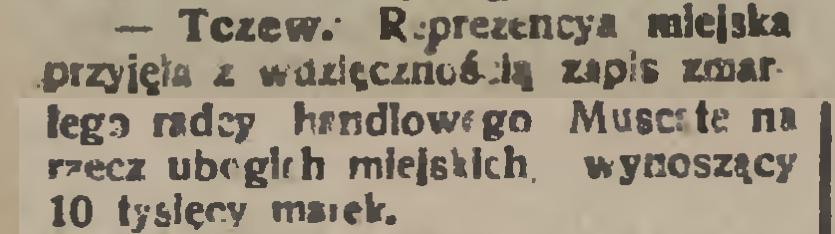 — Tczew. Reprezencya miejska
przyjęła z wdzięcznością zapis zmar-
łego radcy handlowego Muscate na
rzecz ubogich miejskich, wynoszący
10 tysięcy marek.